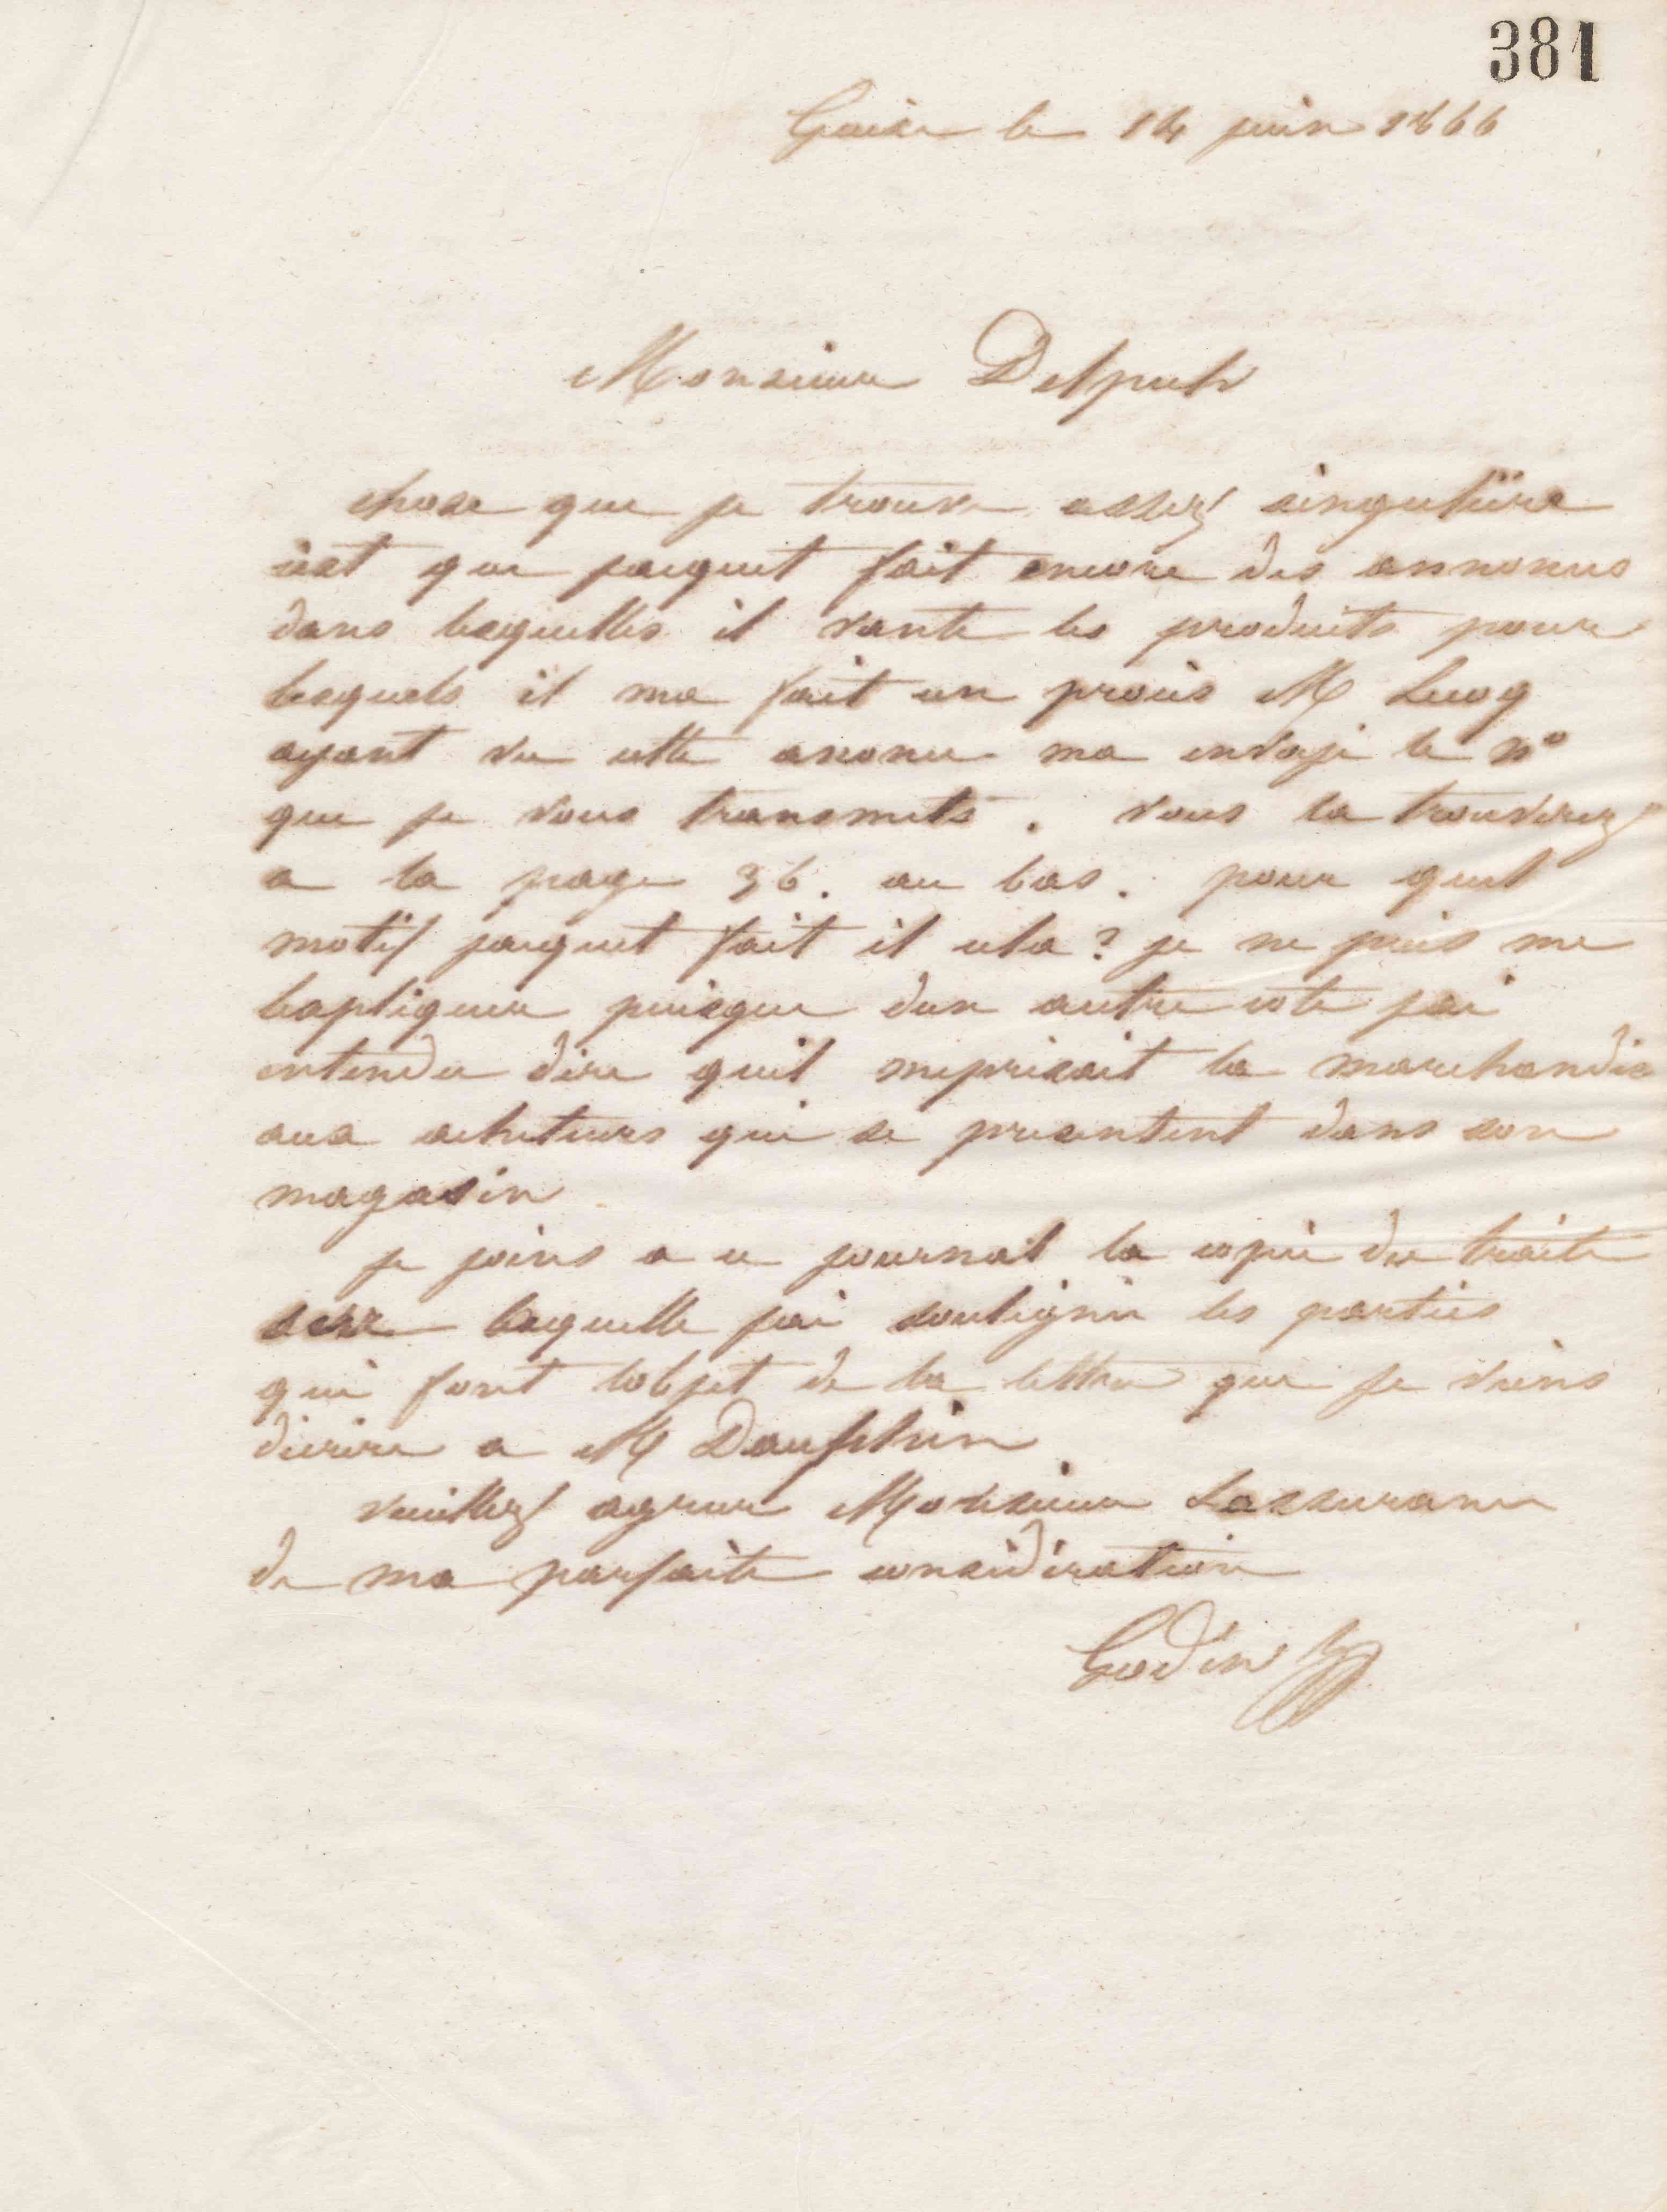 381
Guise le 14 juin 1866
Monsieur Delpech
chose que je trouve assez singulière
cest que jacquet fait encore des annonces
dans lesquelles il vante les produits pour
lesquels il ma fait un procès M Lecoq
ayant vu cette anonce ma envoyé le n°
que je vous transmets. vous la trouverez
a la page 36. au bas. pour quel
motif jacquet fait il cela? je ne puis me
lexpliquer puisque dun autre coté jai
entendu dire quil meprisait la marchandise
aux acheteurs qui se presentent dans son
magasin
je joins a ce journal la copie du traité
sur laquelle jai souligné les parties
qui font lobjet de la lettre que je viens
décrire a M Dauphin
veuillez agreer Monsieur Lassurance
de ma parfaite considération
Godin